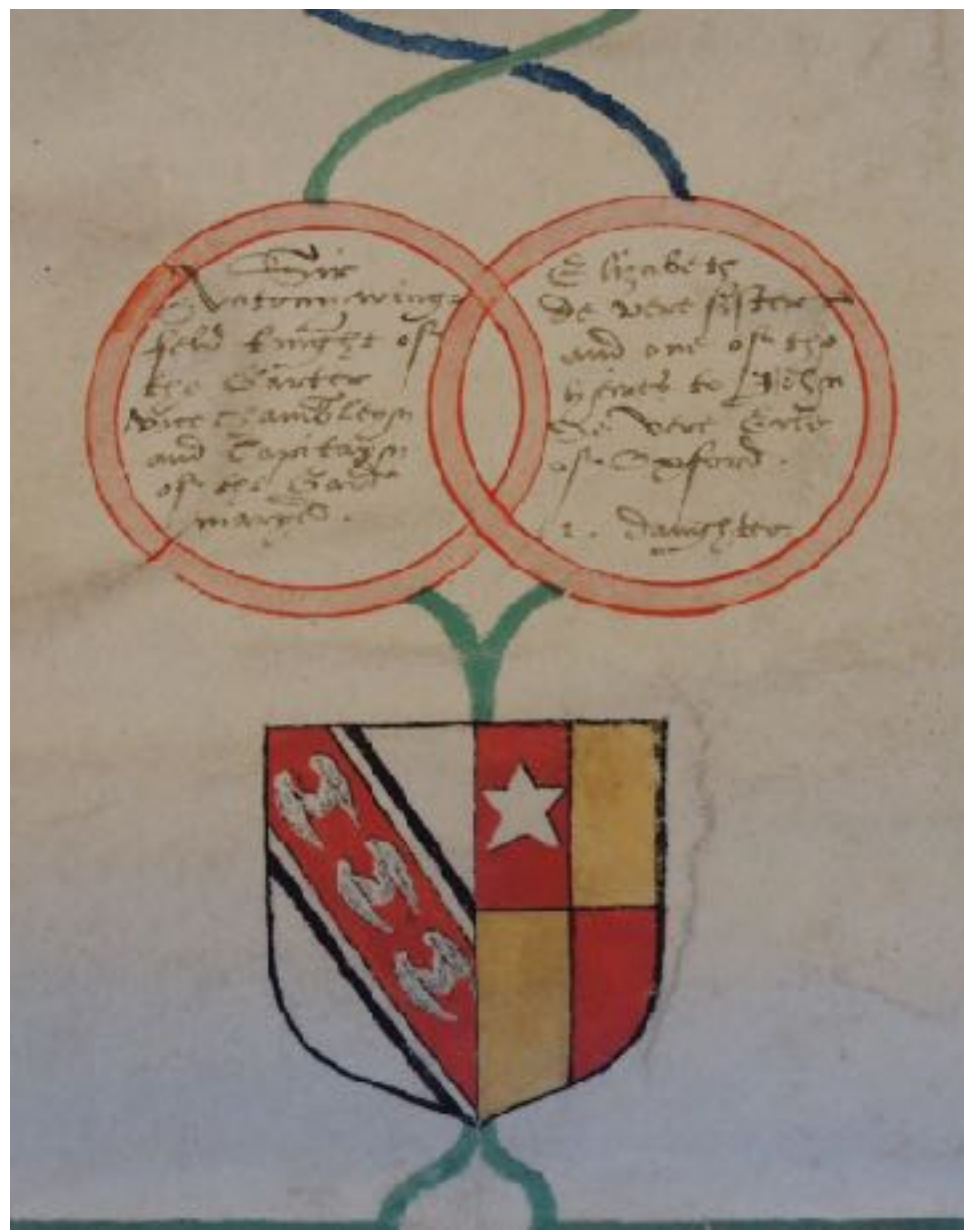 Sir
Antony wing=
feld knight of
the Garter
vice chambleyn
and Capitayn
of the Gard
maryed.
Elizabeth
de vere sister
and one of the
heires to John
de vere Erle
of Oxford.
2. daughter